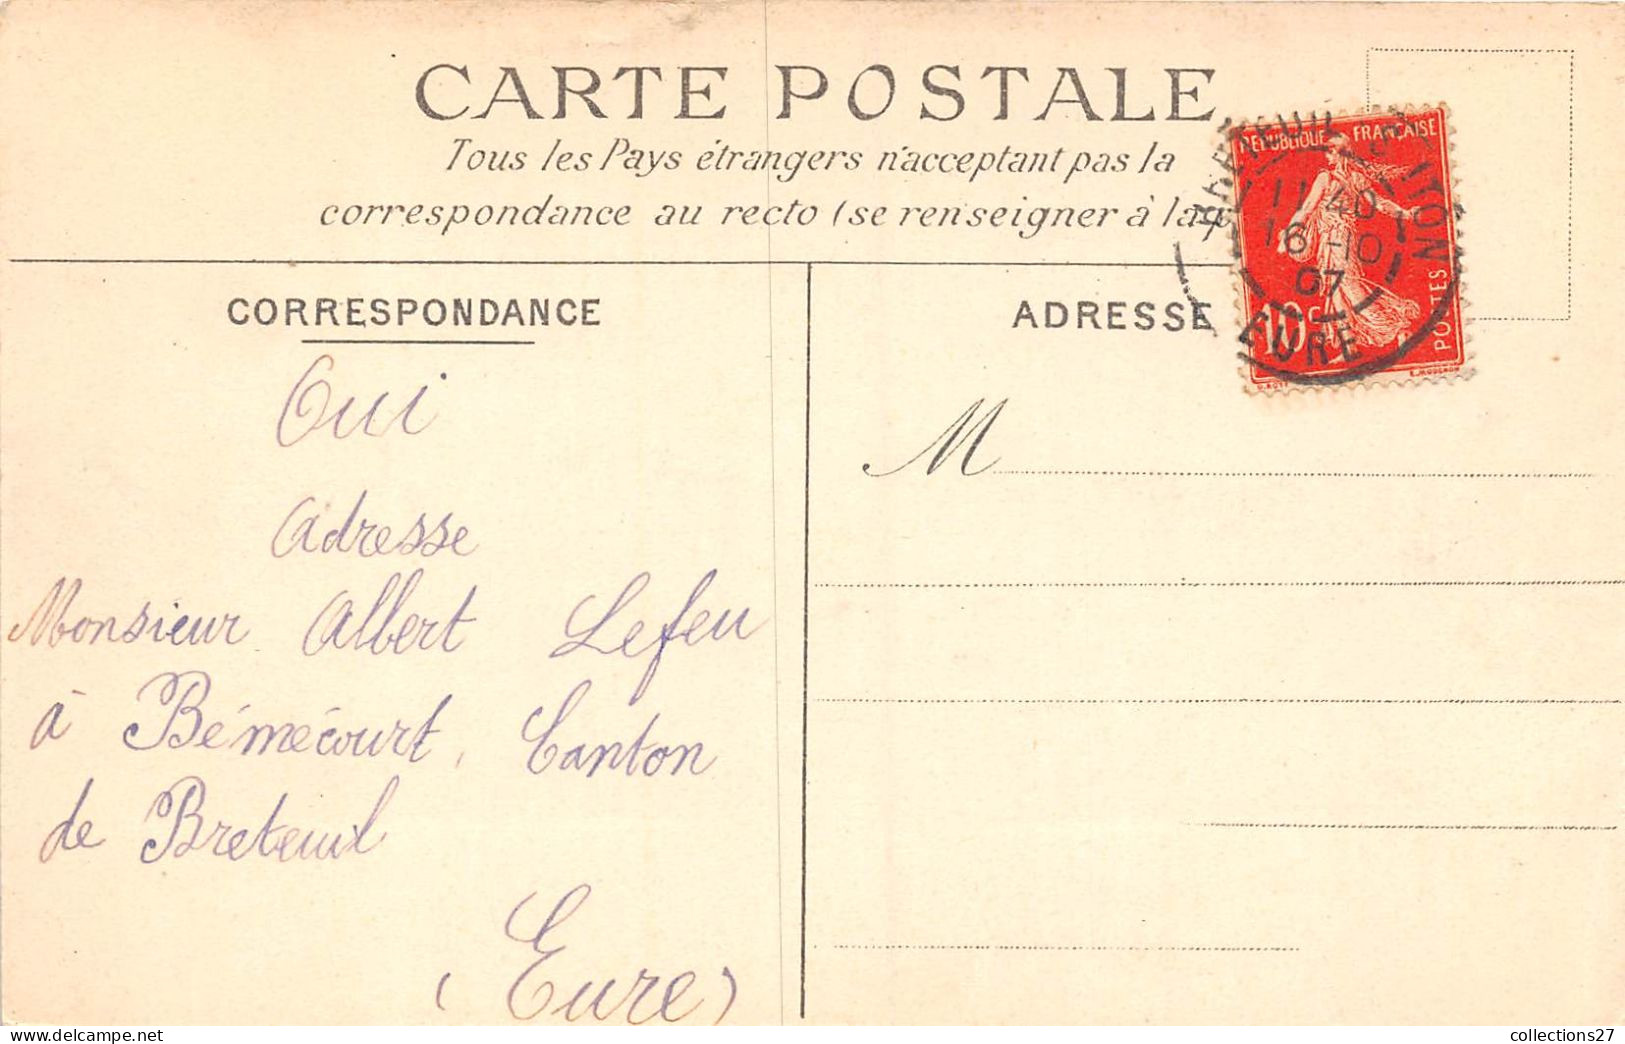 CARTE POSTALE
Tous les Pays étrangers n'acceptant pas la
correspondance au recto (se renseigner à la
CORRESPONDANCE
ADRESSE
REPUBLIQUE FRANÇAISE
POSTES
10 c
O. ROTY
E. MOUCHON
BRETEUIL-S-ITON
11 40
16 -10
07
EURE
M
Oui
Adresse
Monsieur Albert Lefeu
à Bémécourt, Canton
de Breteuil
(Eure)
collections27